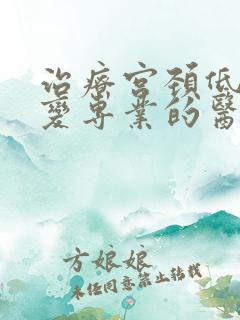 治療宮頚低
變専業的醫
方娘娘
未经同意禁止转载